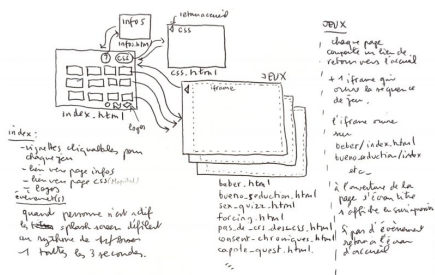 infos
infos.html
retour accueil
css
?
css
css.html
index.html
logos
JEUX
iframe
index :
- vignettes cliquables pour
chaque jeu
- lien vers page infos
- lien vers page css
logos
quand personne n'est actif
les splash screen défilent
au rythme de
1 toutes les 3 secondes.
beber.html
bueno_seduction.html
sex_quizz.html
forcing.html
consent-chroniques.html
capote_quest.html
JEUX
chaque page
comporte un lien de
retour vers l'accueil
+ 1 iframe qui
ouvre la séquence
de jeu.
l'iframe ouvre
sur
beber/index.html
bueno_seduction/index
etc
à l'ouverture de la
page l'écran titre
s'affiche en surimpression
si pas d'événement
retour à l'écran
d'accueil